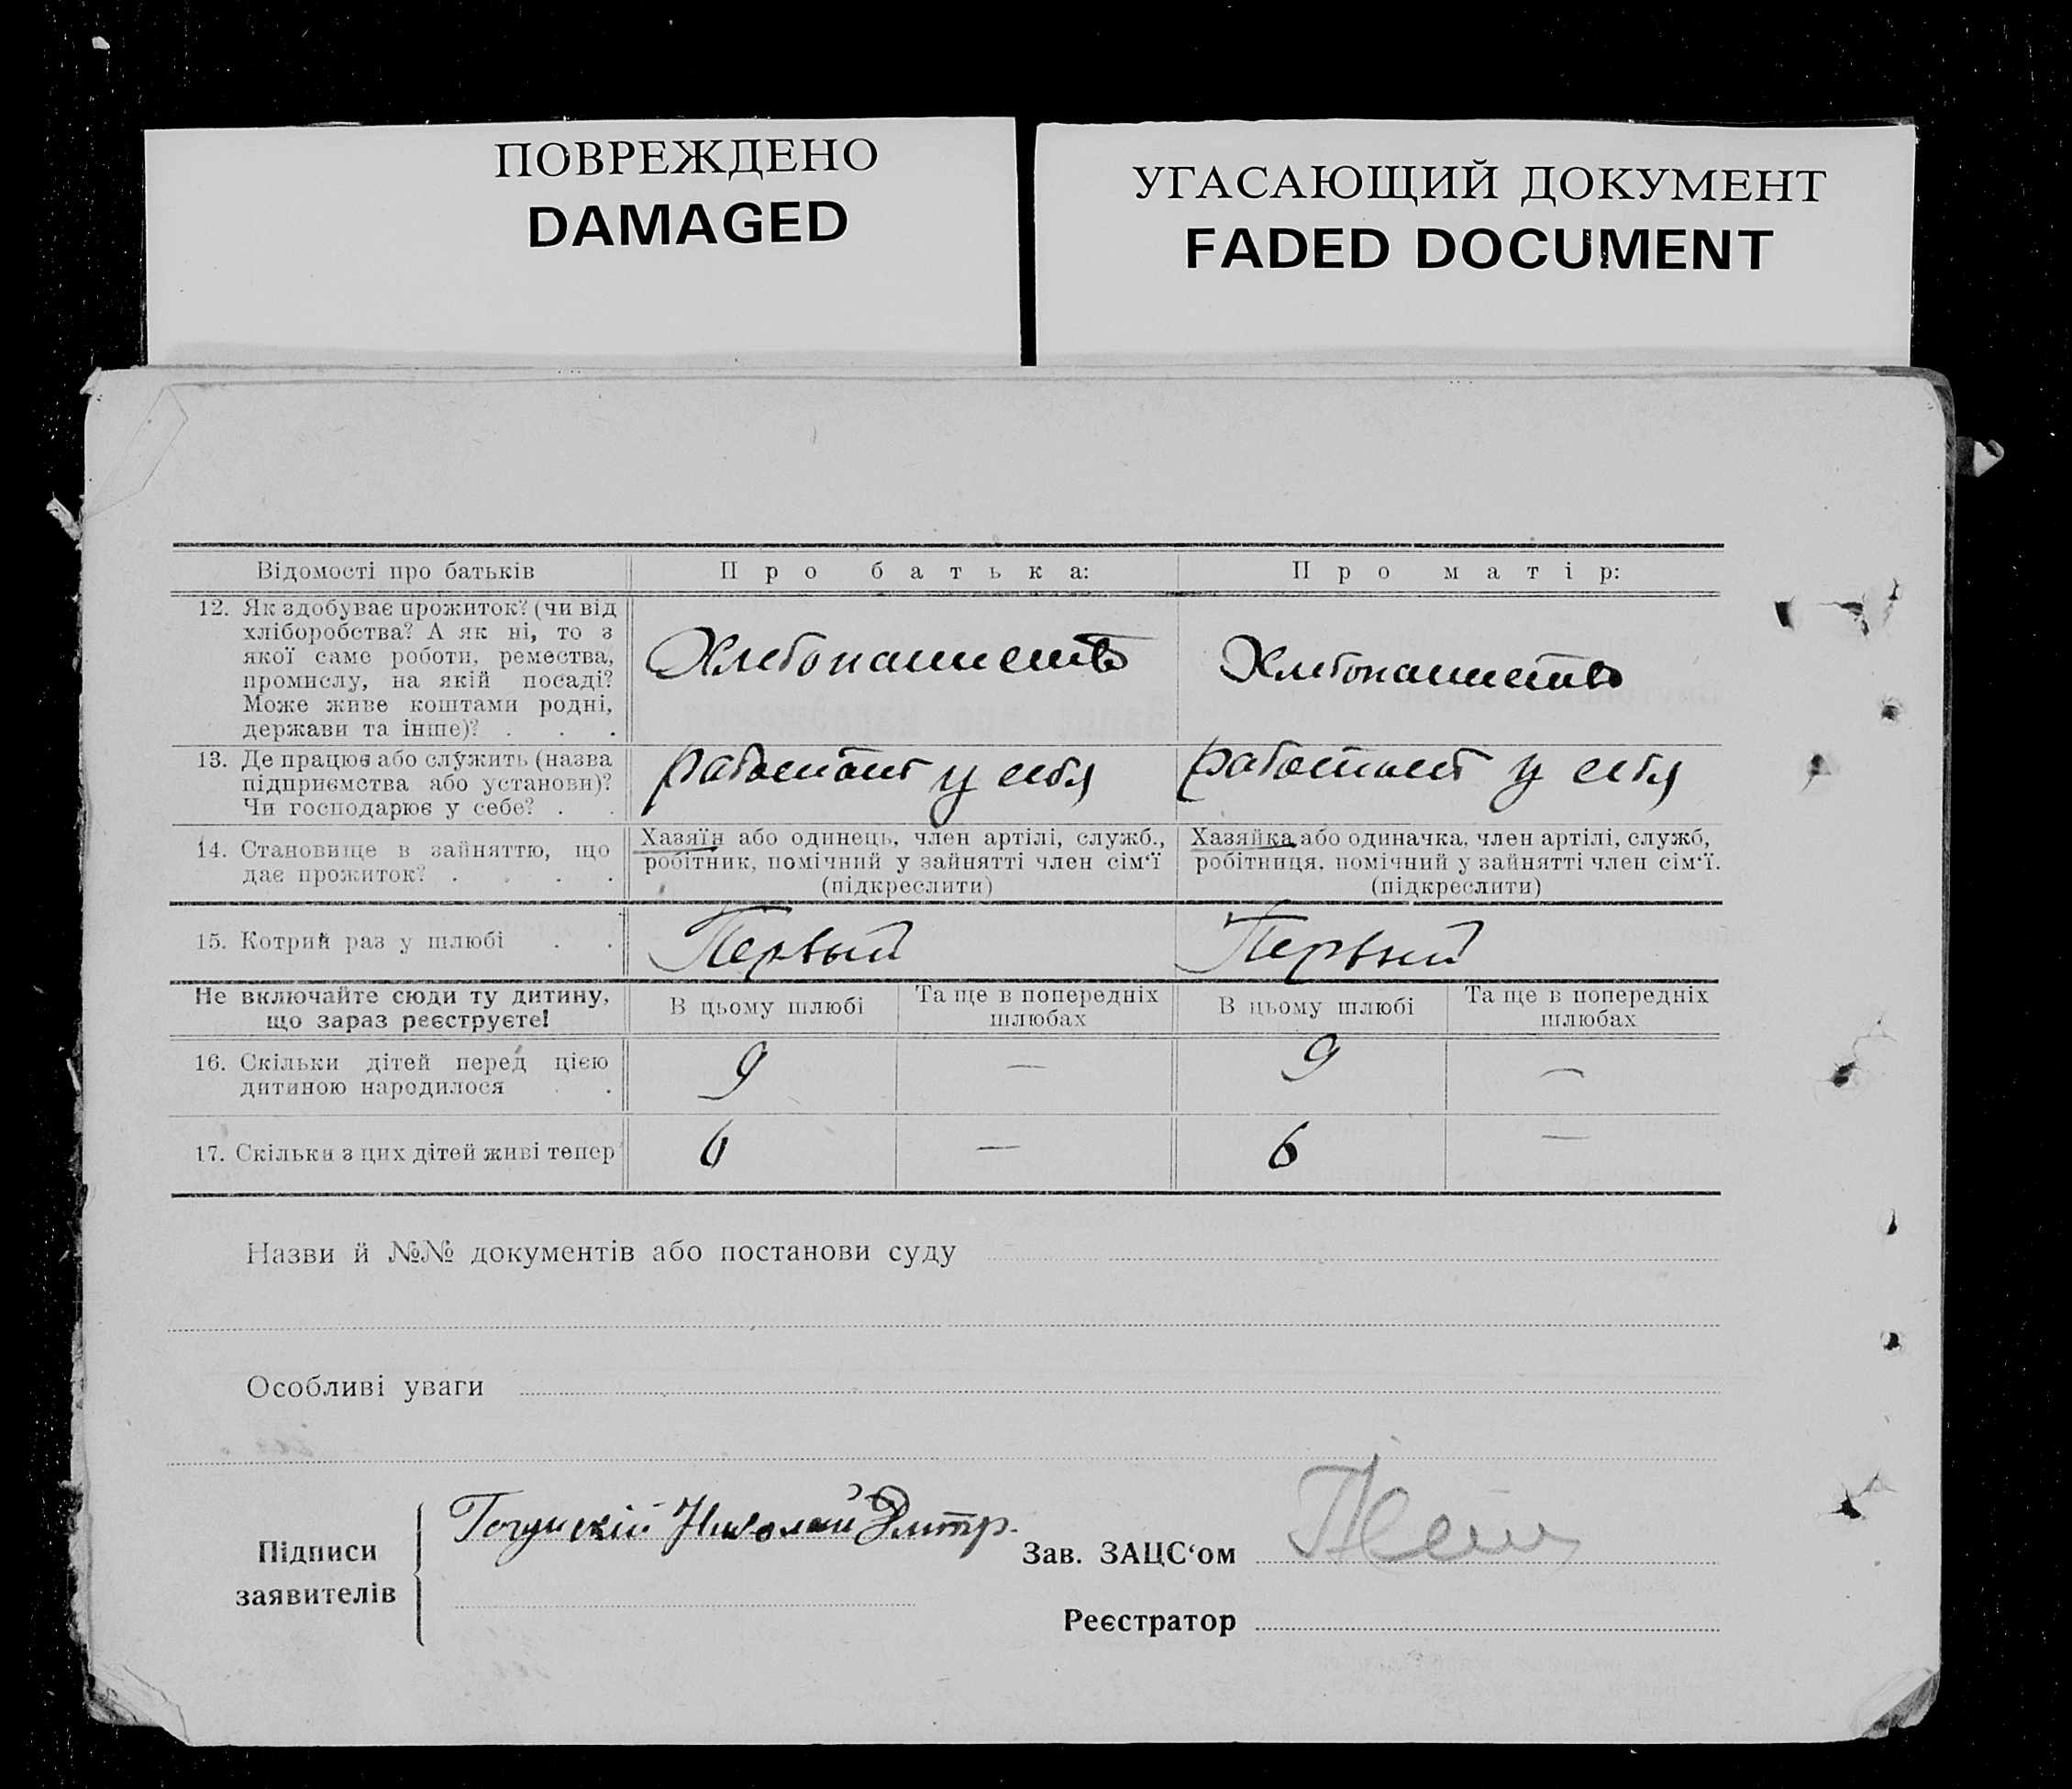 ПОВРЕЖДЕНО
DAMAGED
УГАСАЮЩИЙ ДОКУМЕНТ
FADED DOCUMENT
Відомості про батьків
Про батька:
Про матір:
12. Як здобуває прожиток? (чи від
хліборобства? А як ні, то з
якої саме роботи, ремества,
промислу, на якій посаді?
Може живе коштами родні,
держави та інше)? . . .
Хлебопашество
Хлебопашество
13. Де працює або служить (назва
підприємства або установи)?
Чи господарює у себе? . .
работает у себя
работает у себя
14. Становище в зайняттю, що
дає прожиток? . . . .
Хазяїн або одинець, член артілі, служб.,
робітник, помічний у зайнятті член сім‘ї
(підкреслити)
Хазяйка або одиначка, член артілі, служб,
робітниця, помічний у зайнятті член сім‘ї.
(підкреслити)
15. Котрий раз у шлюбі . .
Первый
Первый
Не включайте сюди ту дитину,
що зараз реєструєте!
В цьому шлюбі
Та ще в попередніх
шлюбах
В цьому шлюбі
Та ще в попередніх
шлюбах
16. Скільки дітей перед цією
дитиною народилося . .
9
—
9
—
17. Скільки з цих дітей живі тепер
6
—
6
—
Назви й №№ документів або постанови суду
Особливі уваги
Підписи
заявителів
Николай Дмитр.
Зав. ЗАЦС‘ом
Реєстратор